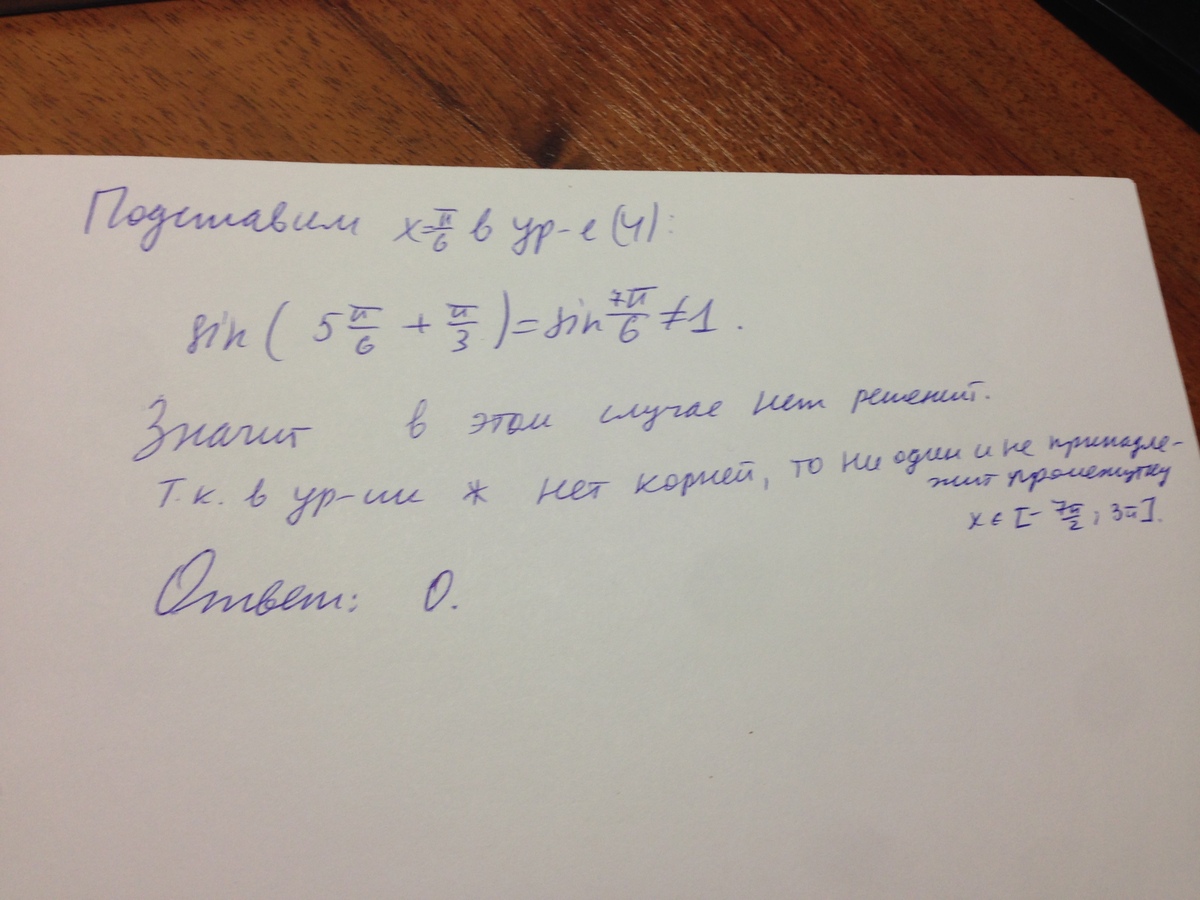 Подставим x=π/6 в ур-е (4):
sin( 5 π/6 + π/3 ) = sin 7π/6 ≠ 1.
Значит в этом случае нет решений.
Т.к. в ур-ии ж нет корней, то ни один и не принадле-
жит промежутку
x ∈ [- 7π/2 ; 3π].
Ответ: 0.